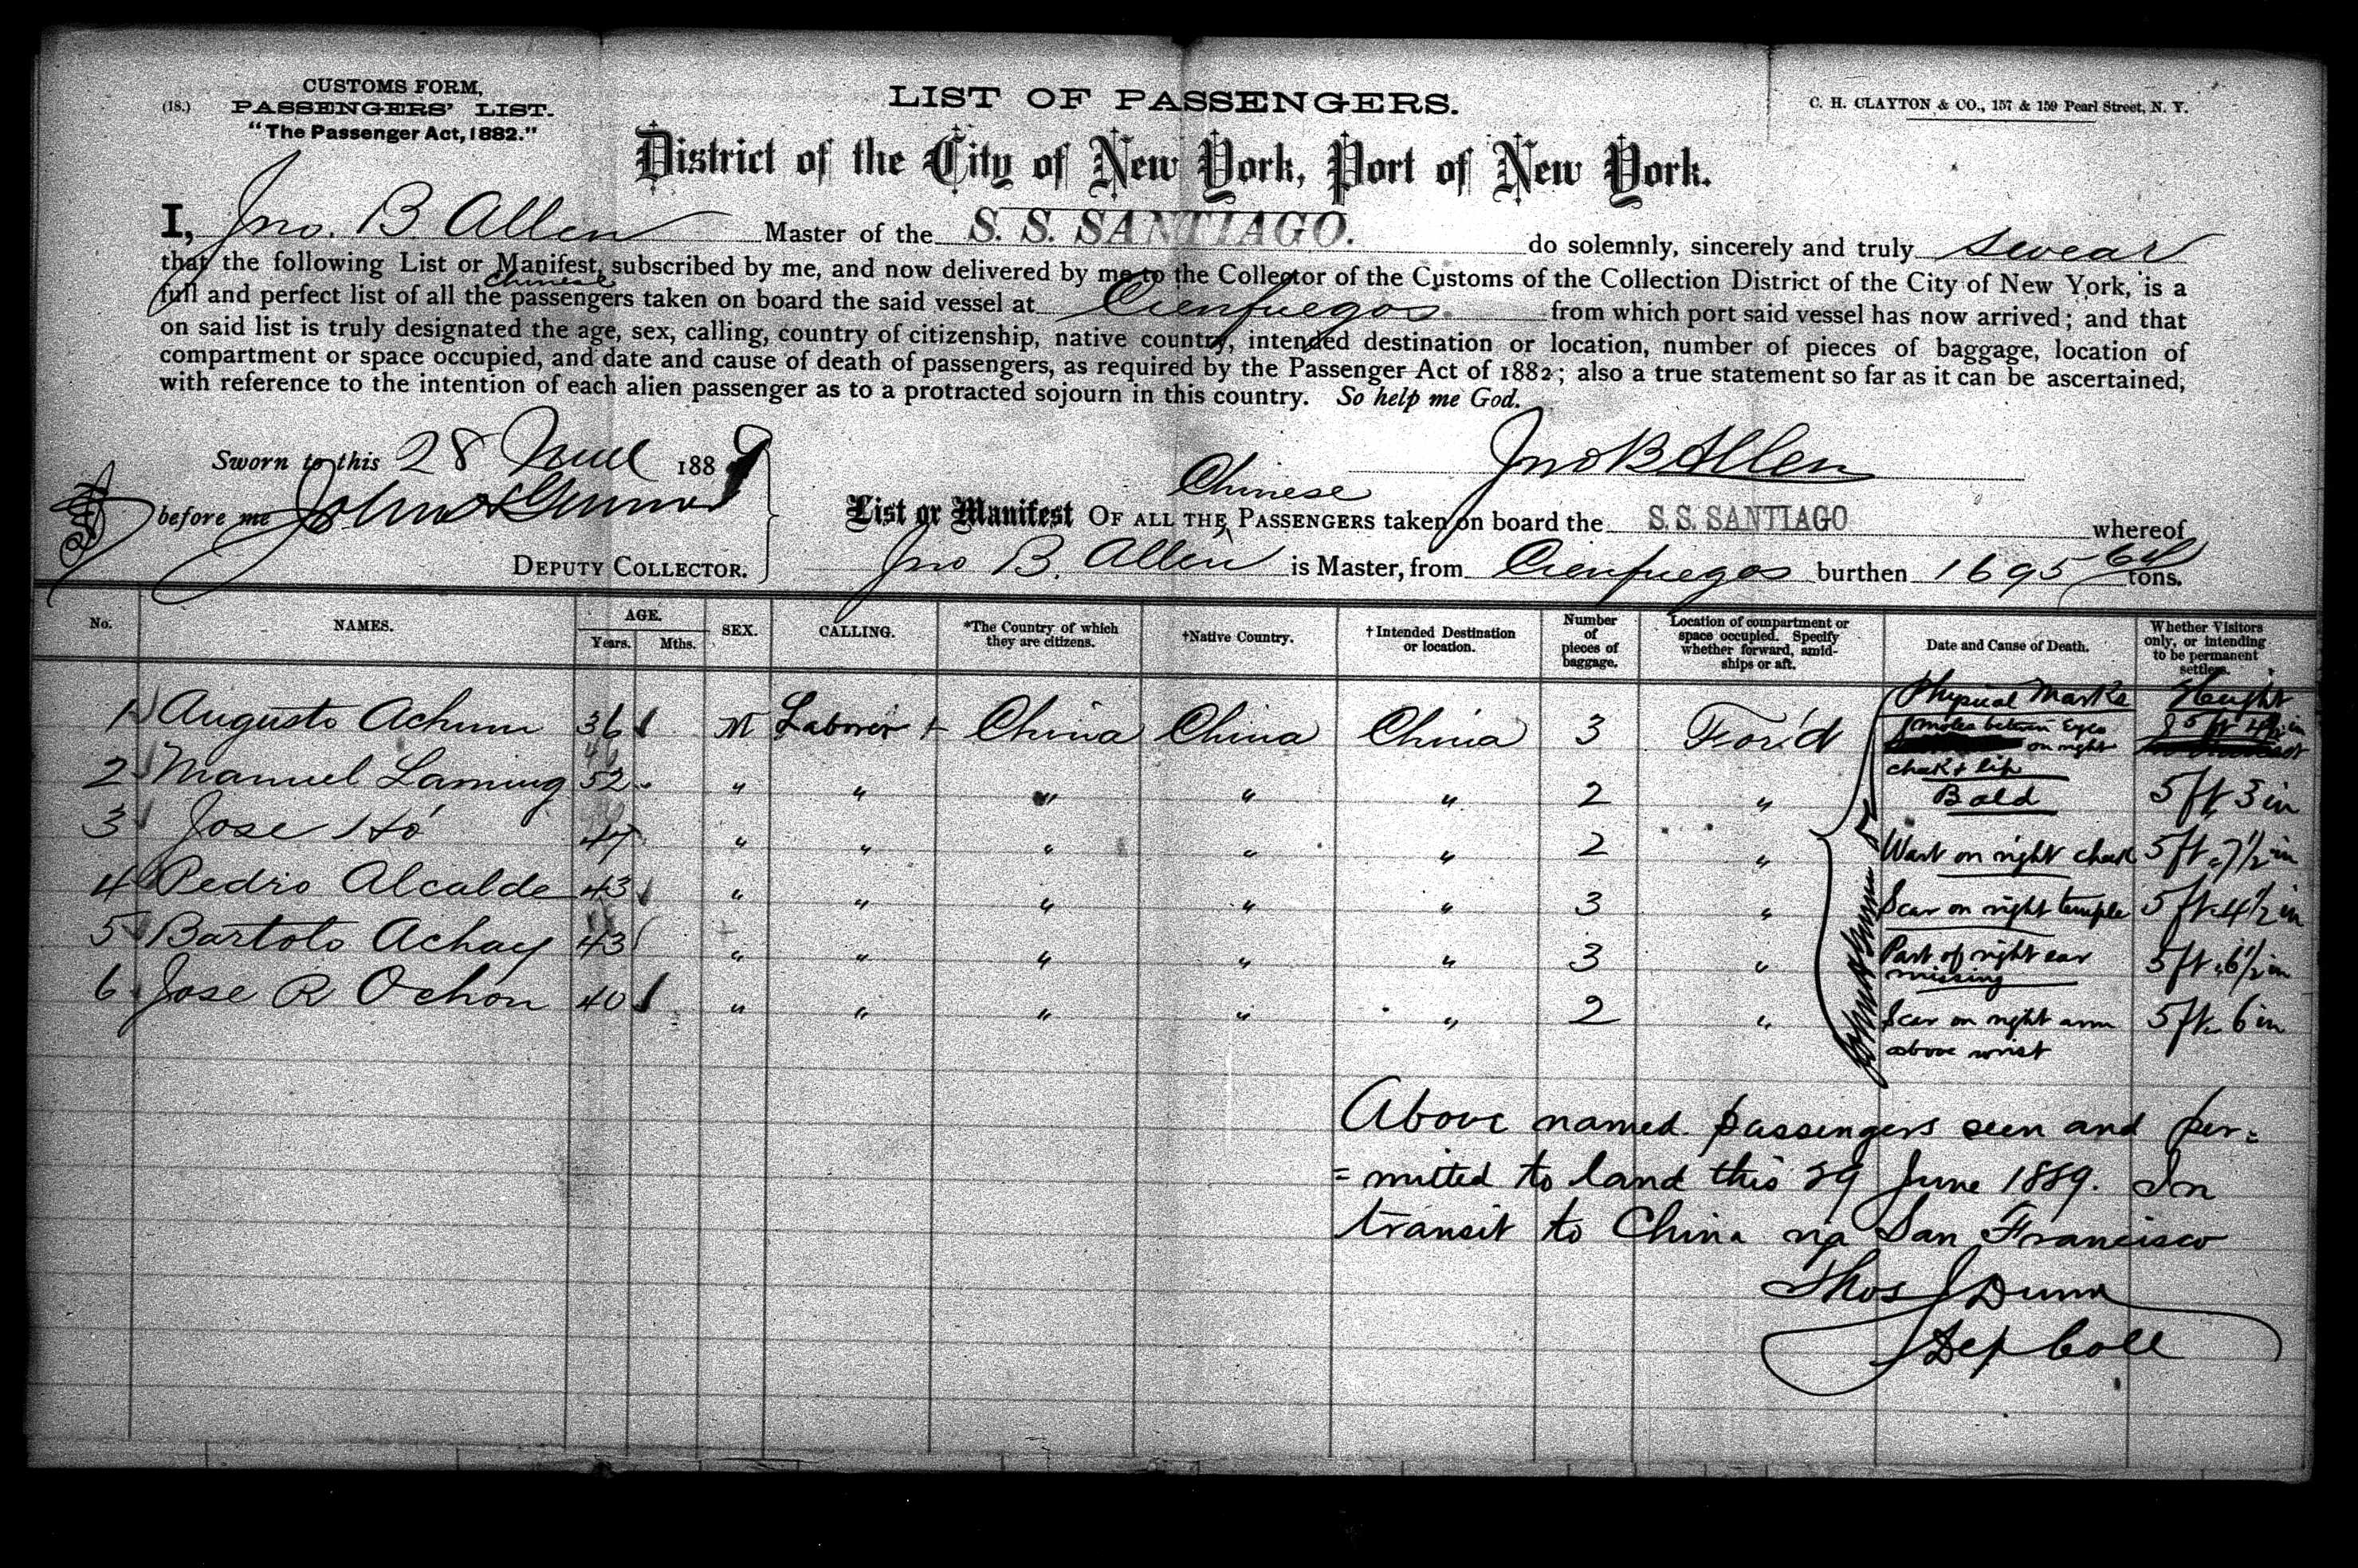 CUSTOMS FORM,
(18.) PASSENGERS' LIST.
"The Passenger Act, 1882."
LIST OF PASSENGERS.
C. H. CLAYTON & CO., 157 & 159 Pearl Street, N. Y.
District of the City of New York, Port of New York.
I, Jno. B. Allen Master of the S. S. SANTIAGO. do solemnly, sincerely and truly swear
that the following List or Manifest, subscribed by me, and now delivered by me to the Collector of the Customs of the Collection District of the City of New York, is a
full and perfect list of all the Chinese passengers taken on board the said vessel at Cienfuegos from which port said vessel has now arrived; and that
on said list is truly designated the age, sex, calling, country of citizenship, native country, intended destination or location, number of pieces of baggage, location of
compartment or space occupied, and date and cause of death of passengers, as required by the Passenger Act of 1882; also a true statement so far as it can be ascertained,
with reference to the intention of each alien passenger as to a protracted sojourn in this country. So help me God.
Sworn to this 28 June 1889
Jno B Allen
before me
DEPUTY COLLECTOR.
List or Manifest OF ALL THE Chinese PASSENGERS taken on board the S.S. SANTIAGO whereof
Jno B. Allen is Master, from Cienfuegos burthen 1695 64 tons.
No. NAMES. AGE. Years. Mths. SEX. CALLING. *The Country of which they are citizens. †Native Country. †Intended Destination or location. Number of pieces of baggage. Location of compartment or space occupied. Specify whether forward, amidships or aft. Date and Cause of Death. Whether Visitors only, or intending to be permanent settlers.
Physical Marks Height
1 Augusto Achun 36 M Laborer China China China 3 For'd moles between Eyes on right cheek & lip 5 ft 4½ in
2 Manuel Laming 52 " " " " " 2 " Bald 5 ft 3 in
3 Jose Hó 47 " " " " " 2 " Wart on right cheek 5 ft 7½ in
4 Pedro Alcalde 43 " " " " " 3 " Scar on right temple 5 ft 4½ in
5 Bartolo Achay 43 " " " " " 3 " Part of right ear missing 5 ft 6½ in
6 Jose R Ochon 40 " " " " " 2 " Scar on right arm above wrist 5 ft 6 in
Above named passengers seen and per=
=mitted to land this 29 June 1889. In
transit to China via San Francisco
Thos J Dunn
Dep Coll